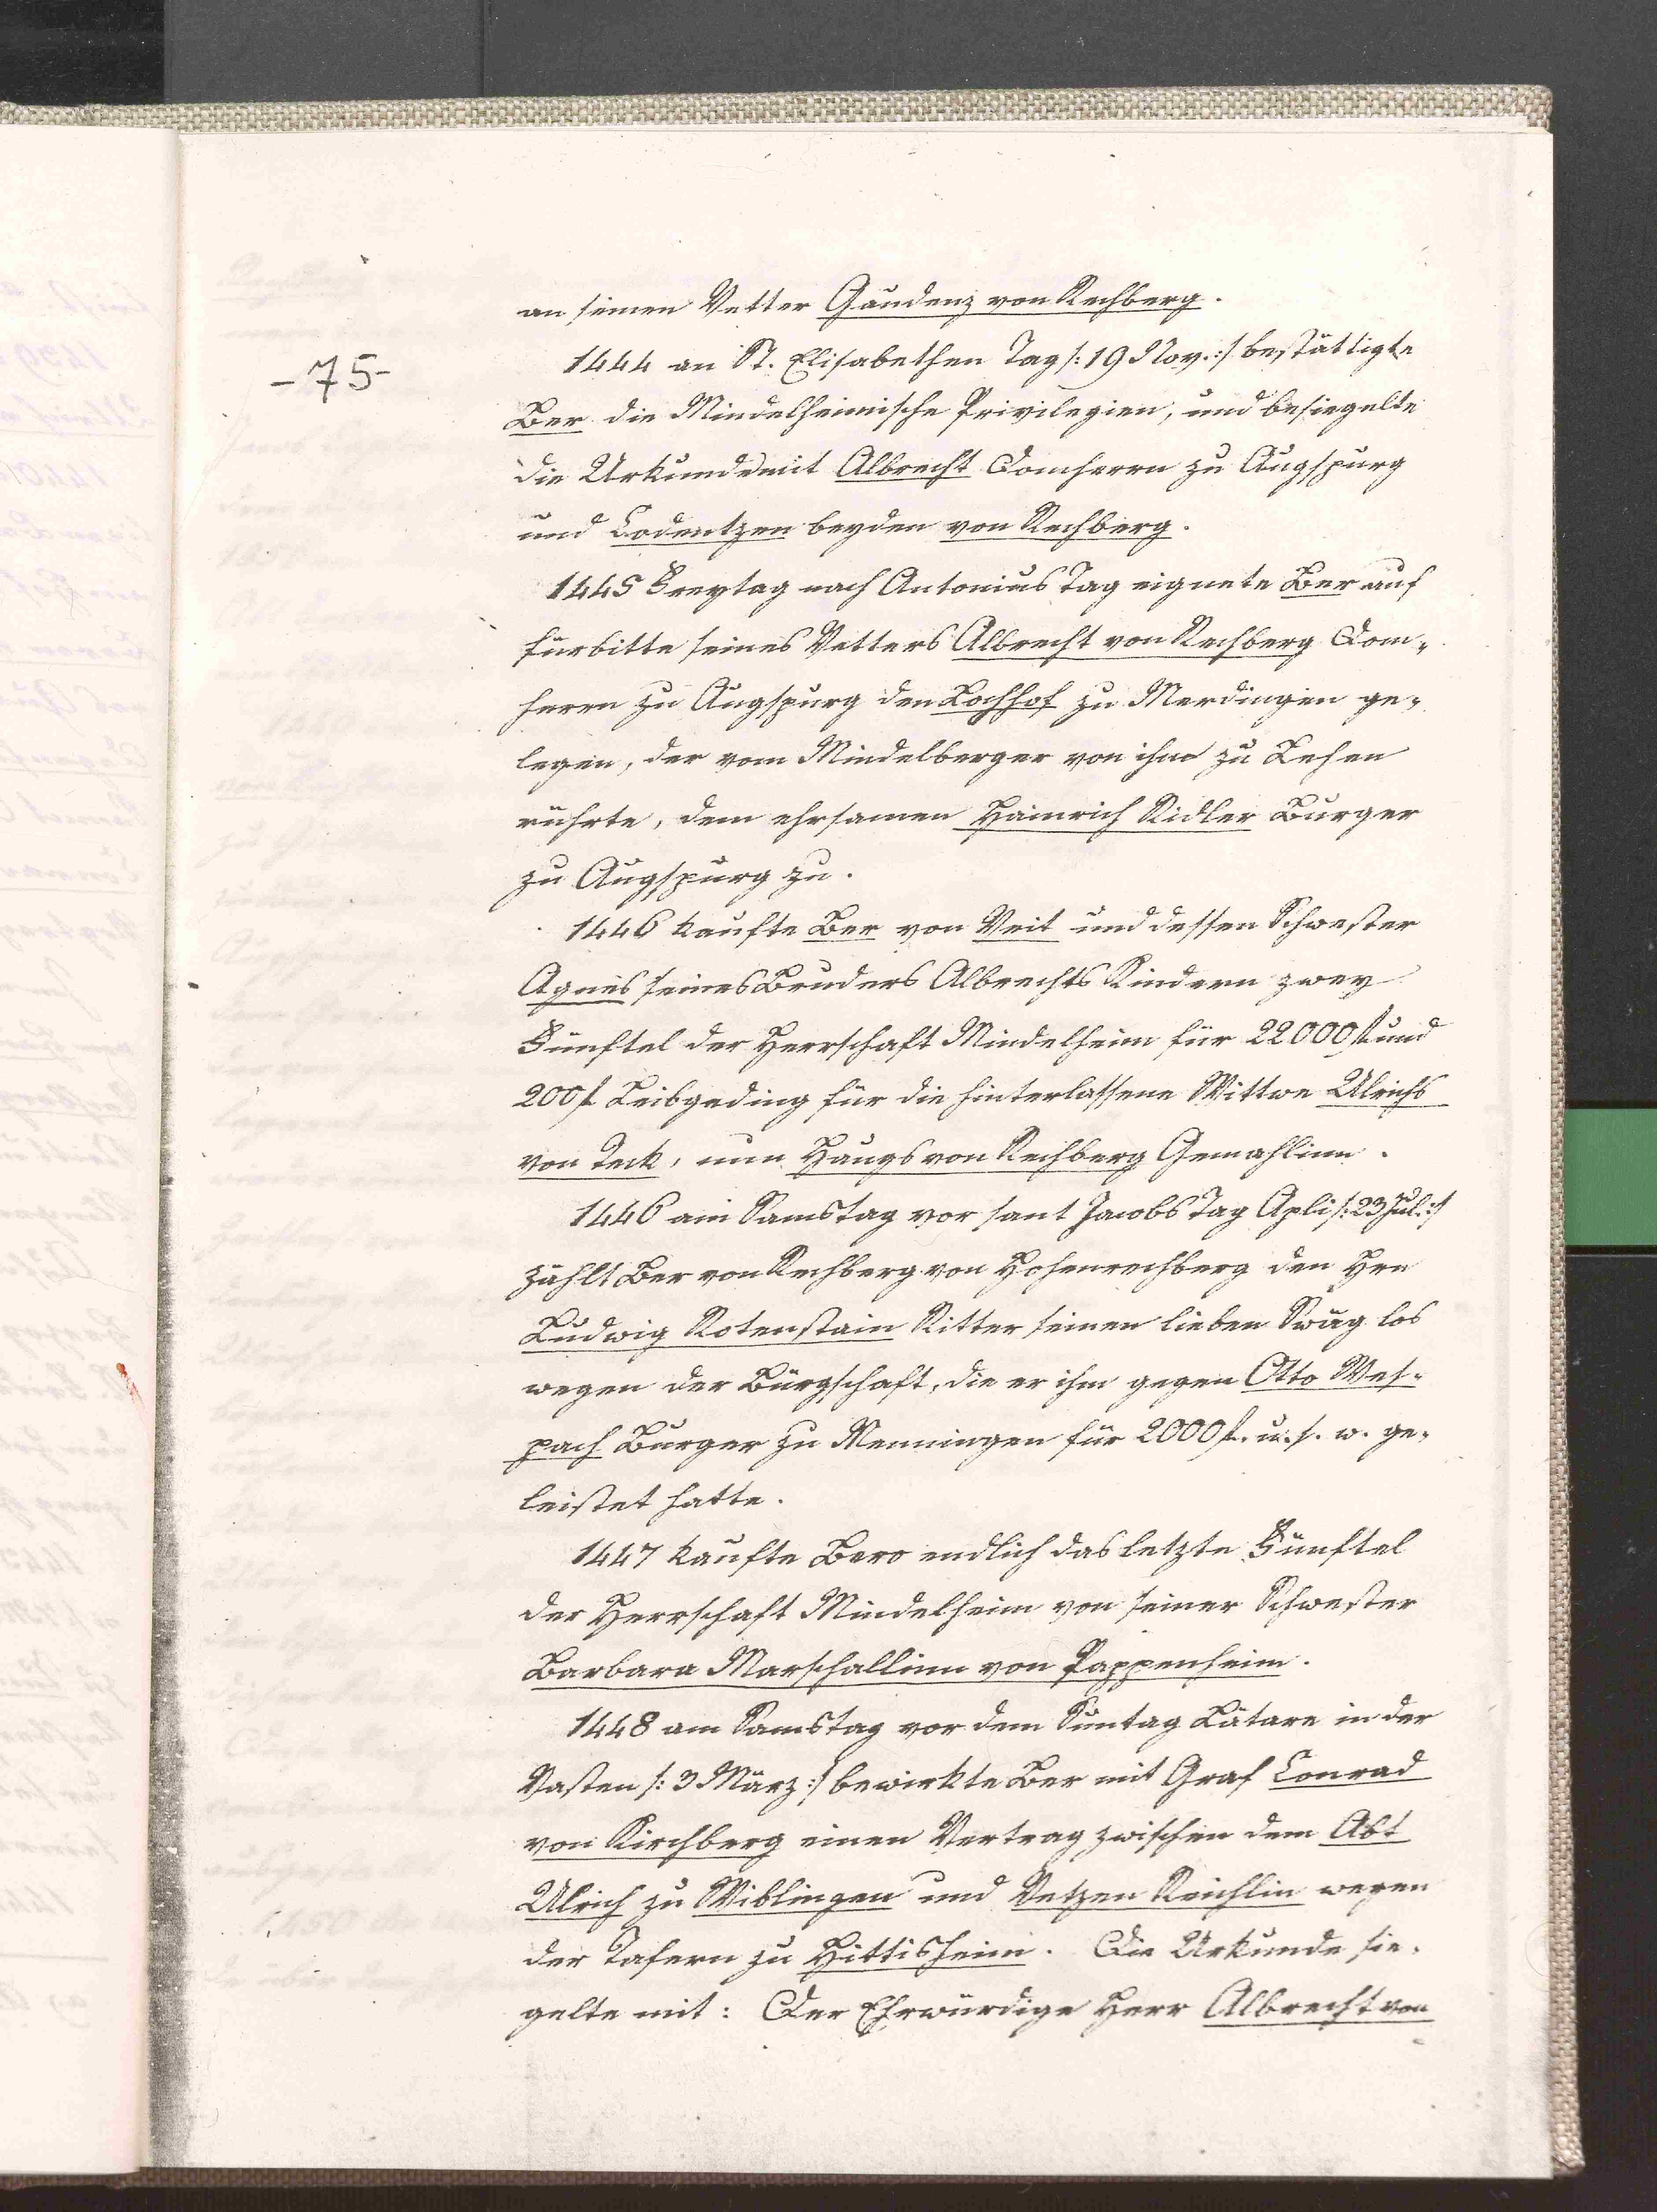 an seinen Vetter Gaudenz von Rechberg.
-75-
1444 an St. Elisabethen Tag /: 19 Nov. :/ bestättigte
Ber die Mindelheimische Privilegien, und besiegelte
die Urkunde mit Albrecht Domherrn zu Augspurg
und Codentzen beyden von Rechberg.
1445 Freytag nach Antonius Tag eignete Ber auf
fürbitte seines Vetters Albrecht von Rechberg Dom-
herrn zu Augspurg den Kochhof zu Merdingen ge-
legen, der vom Mindelberger von ihm zu Lehen
rührte, dem ehrsamen Hainrich Ridler Burger
zu Augspurg zu.
1446 kaufte Ber von Veit und dessen Schwester
Agnes seines Bruders Albrechts Kindern zwey
Fünftel der Herrschaft Mindelheim für 22000 f und
200 f Leibgeding für die hinterlassene Wittwe Ulrichs
von Teck, nun Haugs von Rechberg Gemahlinn.
1446 am Samstag vor sant Jacobs Tag Apli /: 23 Jul. :/
zählt Ber von Rechberg von Hohenrechberg den Hrn
Ludwig Rotenstain Ritter seinen lieben Swäg los
wegen der Bürgschaft, die er ihm gegen Otto Wes-
pach Burger zu Memingen für 2000 f. u. s. w. ge-
leistet hatte.
1447 kaufte Bero endlich das letzte Fünftel
der Herrschaft Mindelheim von seiner Schwester
Barbara Marschallinn von Pappenheim.
1448 am Samstag vor dem Suntag Lätare in der
Vasten /: 3 März :/ bewirkte Ber mit Graf Conrad
von Kirchberg einen Vertrag zwischen dem Abt
Ulrich zu Wiblingen und Vetzen Reichlin wegen
der Tafern zu Hittisheim. Die Urkunde sie-
gelte mit: Der Ehrwürdige Herr Albrecht von